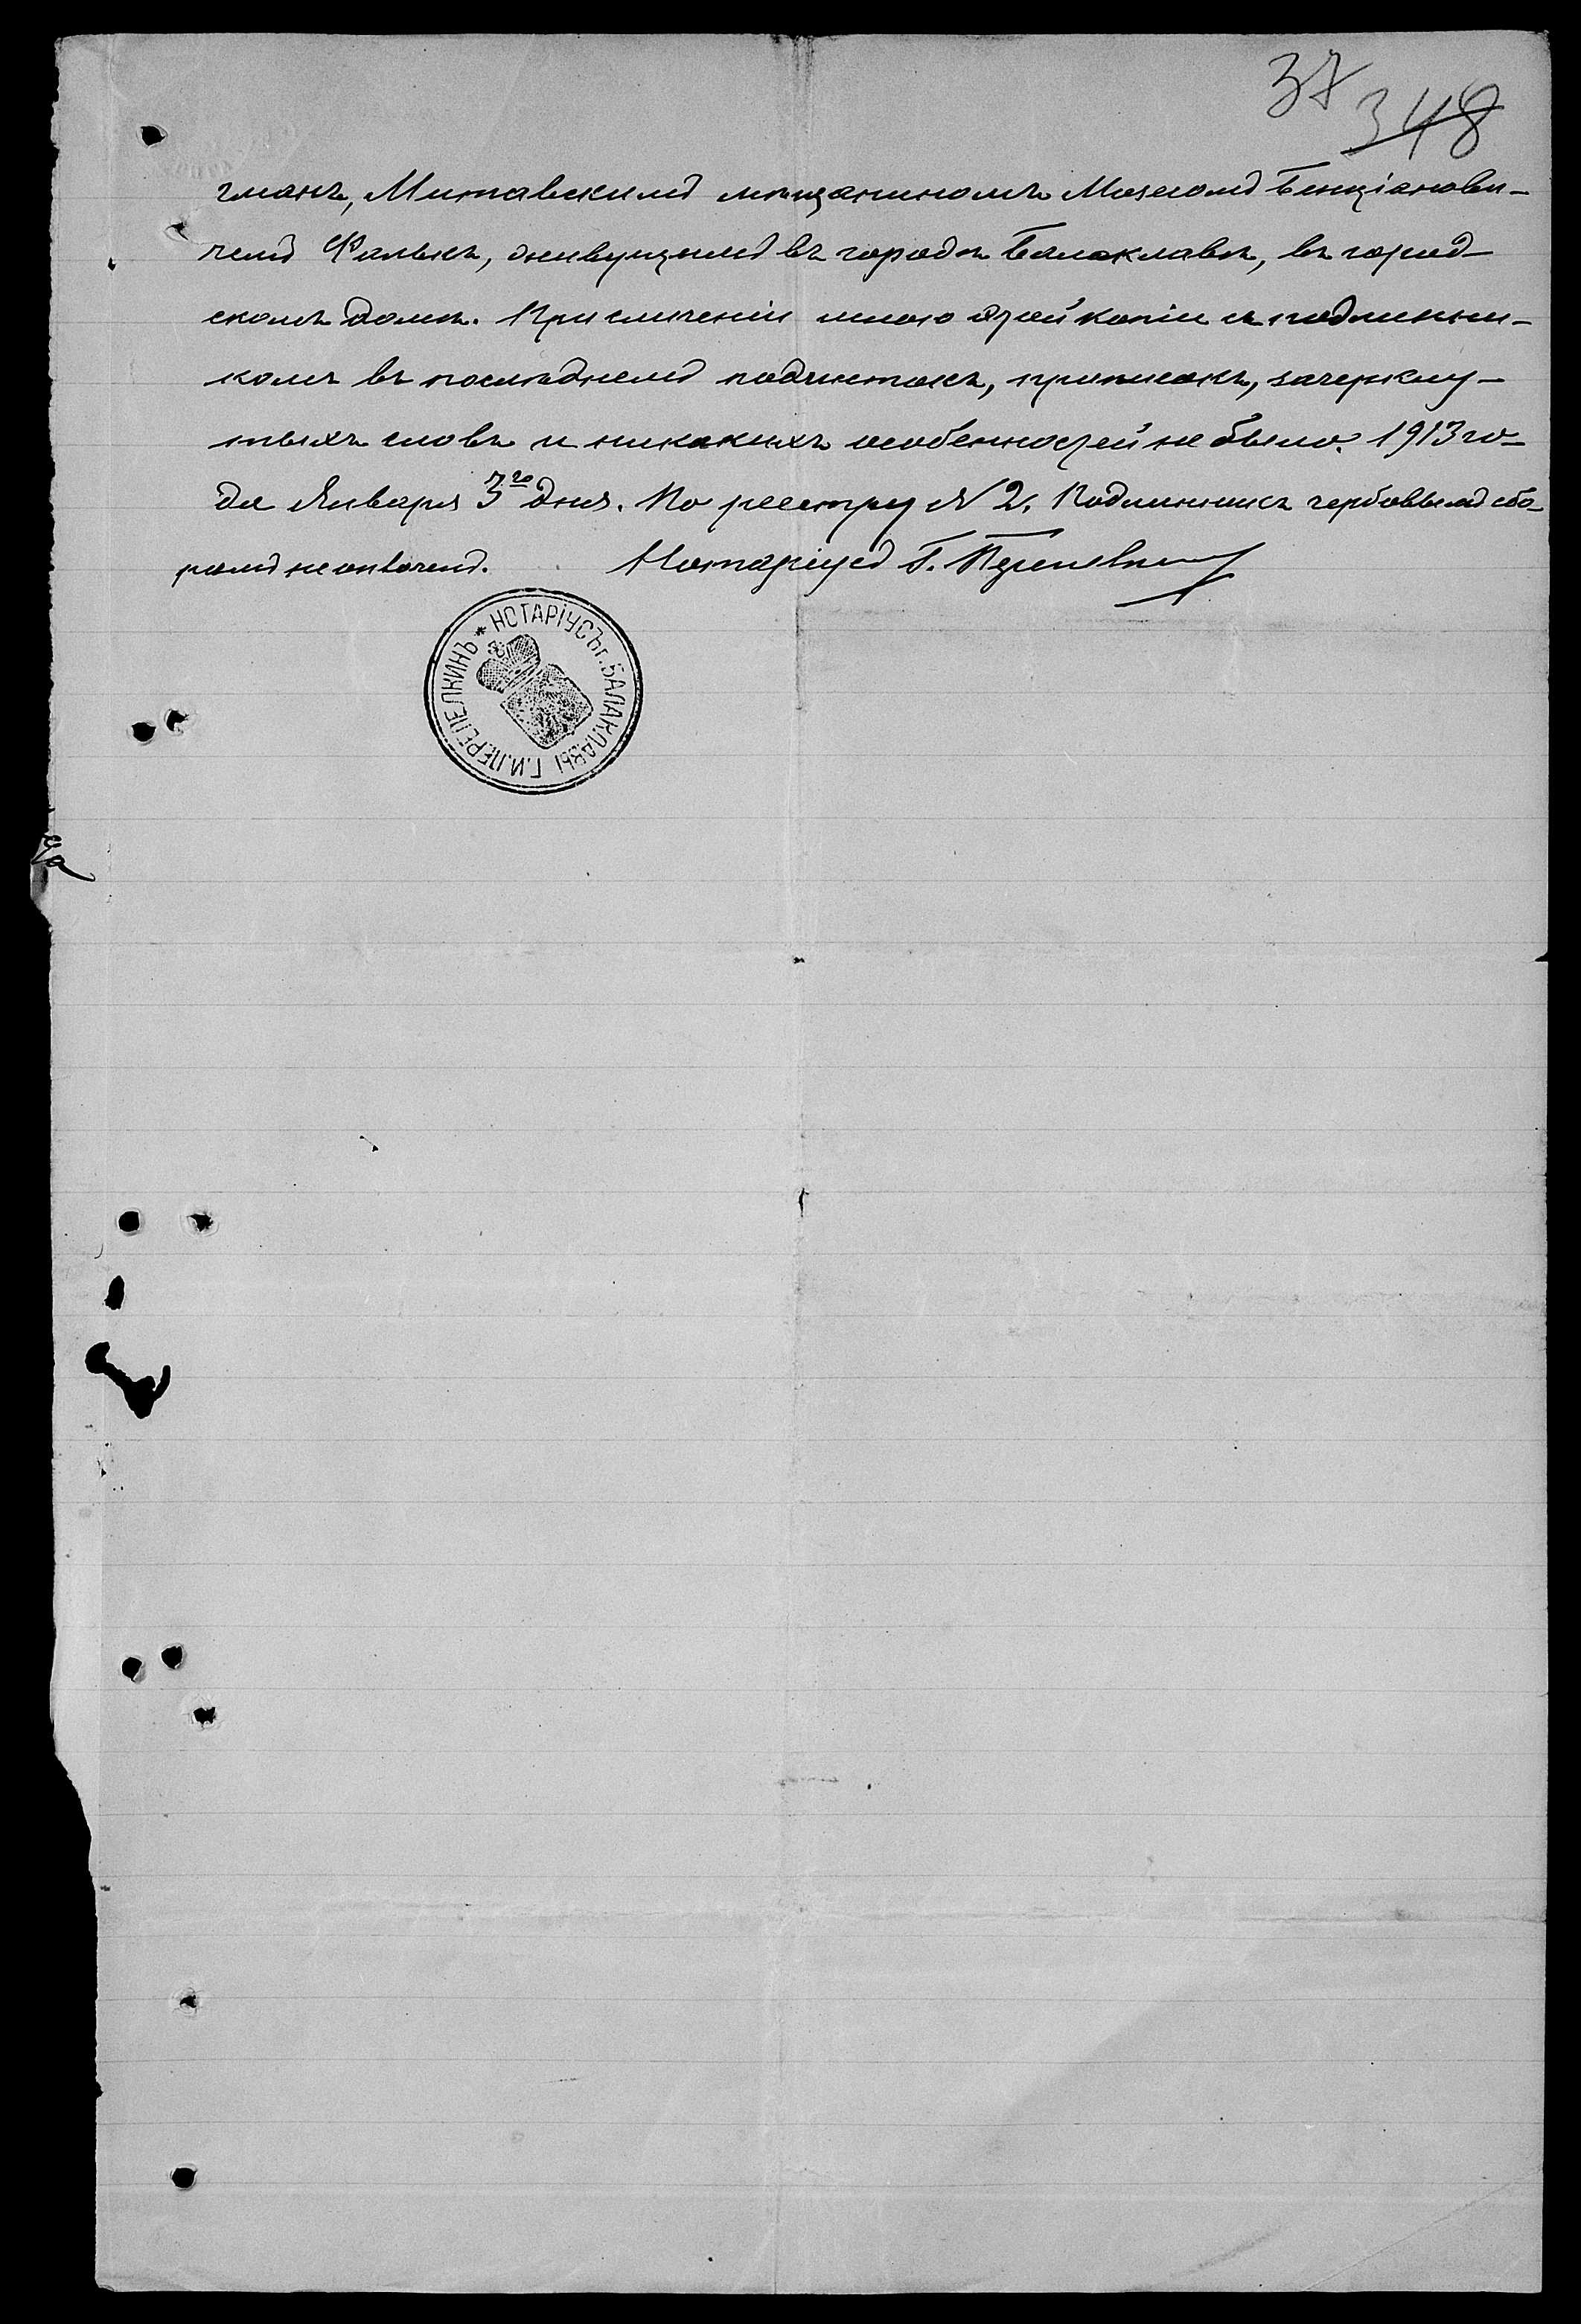 37
348
чманъ, Митавскимъ мѣщаниномъ Мозесомъ Бенціанови-
чемъ Фалькъ, живущимъ въ городѣ Балаклавѣ, въ город-
скомъ домѣ. При сличеніи мною этой копіи съ подлинни-
комъ въ послѣднемъ подчистокъ, приписокъ, зачеркну-
тыхъ словъ и никакихъ особенностей не было. 1913 го-
да Января 3го дня. По реестру № 2. Подлинникъ гербовымъ сбо-
ромъ не оплоченъ. Нотаріусъ Г. Перепелкинъ
* НОТАРІУСЪ Г. БАЛАКЛАВЫ Г.И. ПЕРЕПЕЛКИНЪ